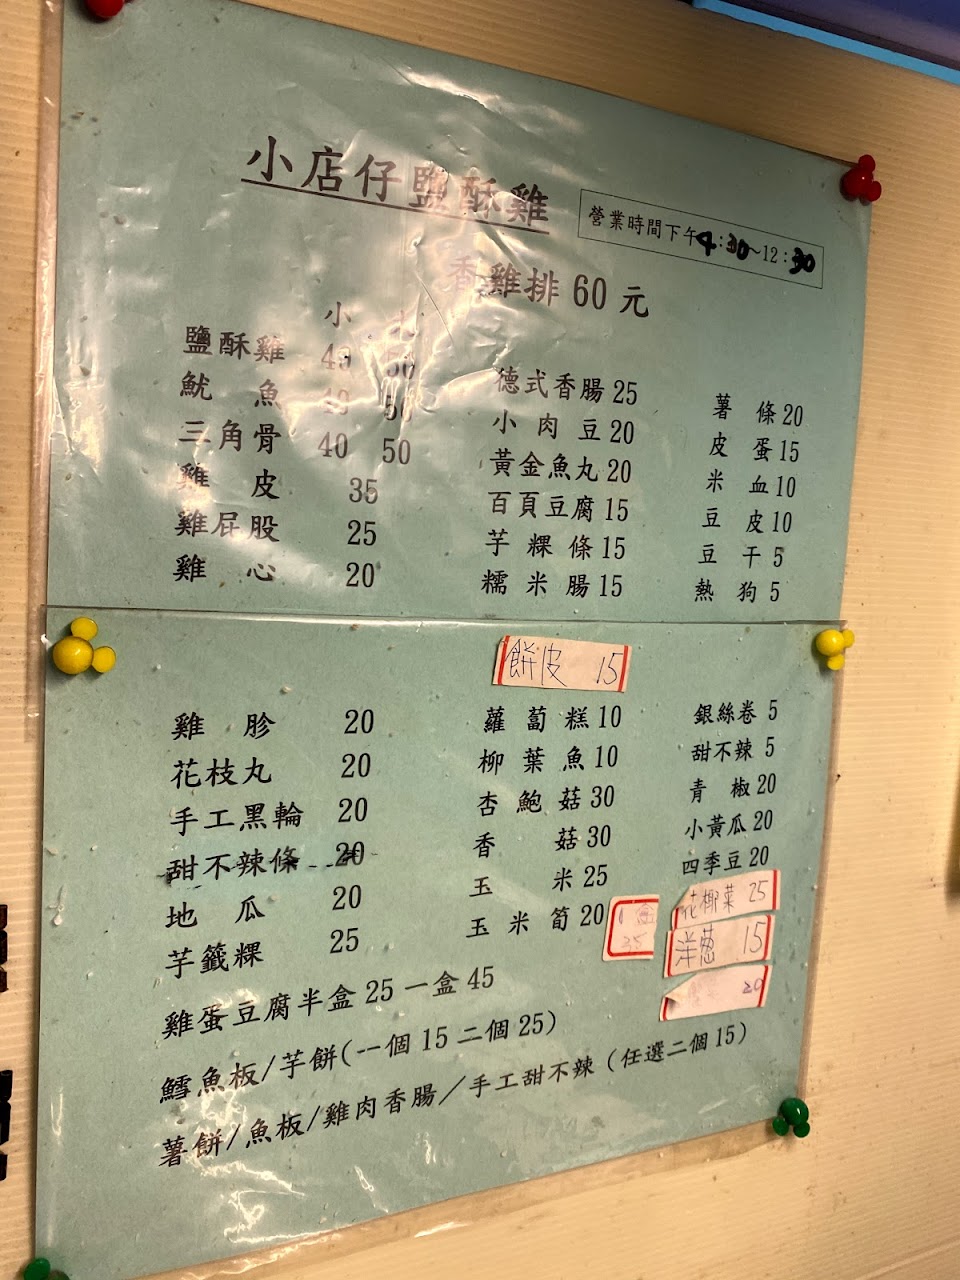 小店仔鹽酥雞
營業時間下午4:30~12:30
香雞排60元
小 大
鹽酥雞 40 50
魷魚 40 50
三角骨 40 50
雞皮 35
雞屁股 25
雞心 20
德式香腸 25
小肉豆 20
黃金魚丸 20
百頁豆腐 15
芋粿條 15
糯米腸 15
薯條 20
皮蛋 15
米血 10
豆皮 10
豆干 5
熱狗 5
餅皮 15
雞胗 20
花枝丸 20
手工黑輪 20
甜不辣條 20
地瓜 20
芋籤粿 25
蘿蔔糕 10
柳葉魚 10
杏鮑菇 30
香菇 30
玉米 25
玉米筍 20
1盒
35
銀絲卷 5
甜不辣 5
青椒 20
小黃瓜 20
四季豆 20
花椰菜 25
洋蔥 15
20
雞蛋豆腐半盒 25 一盒 45
鱈魚板/芋餅(一個 15 二個 25)
薯餅/魚板/雞肉香腸/手工甜不辣(任選二個 15)